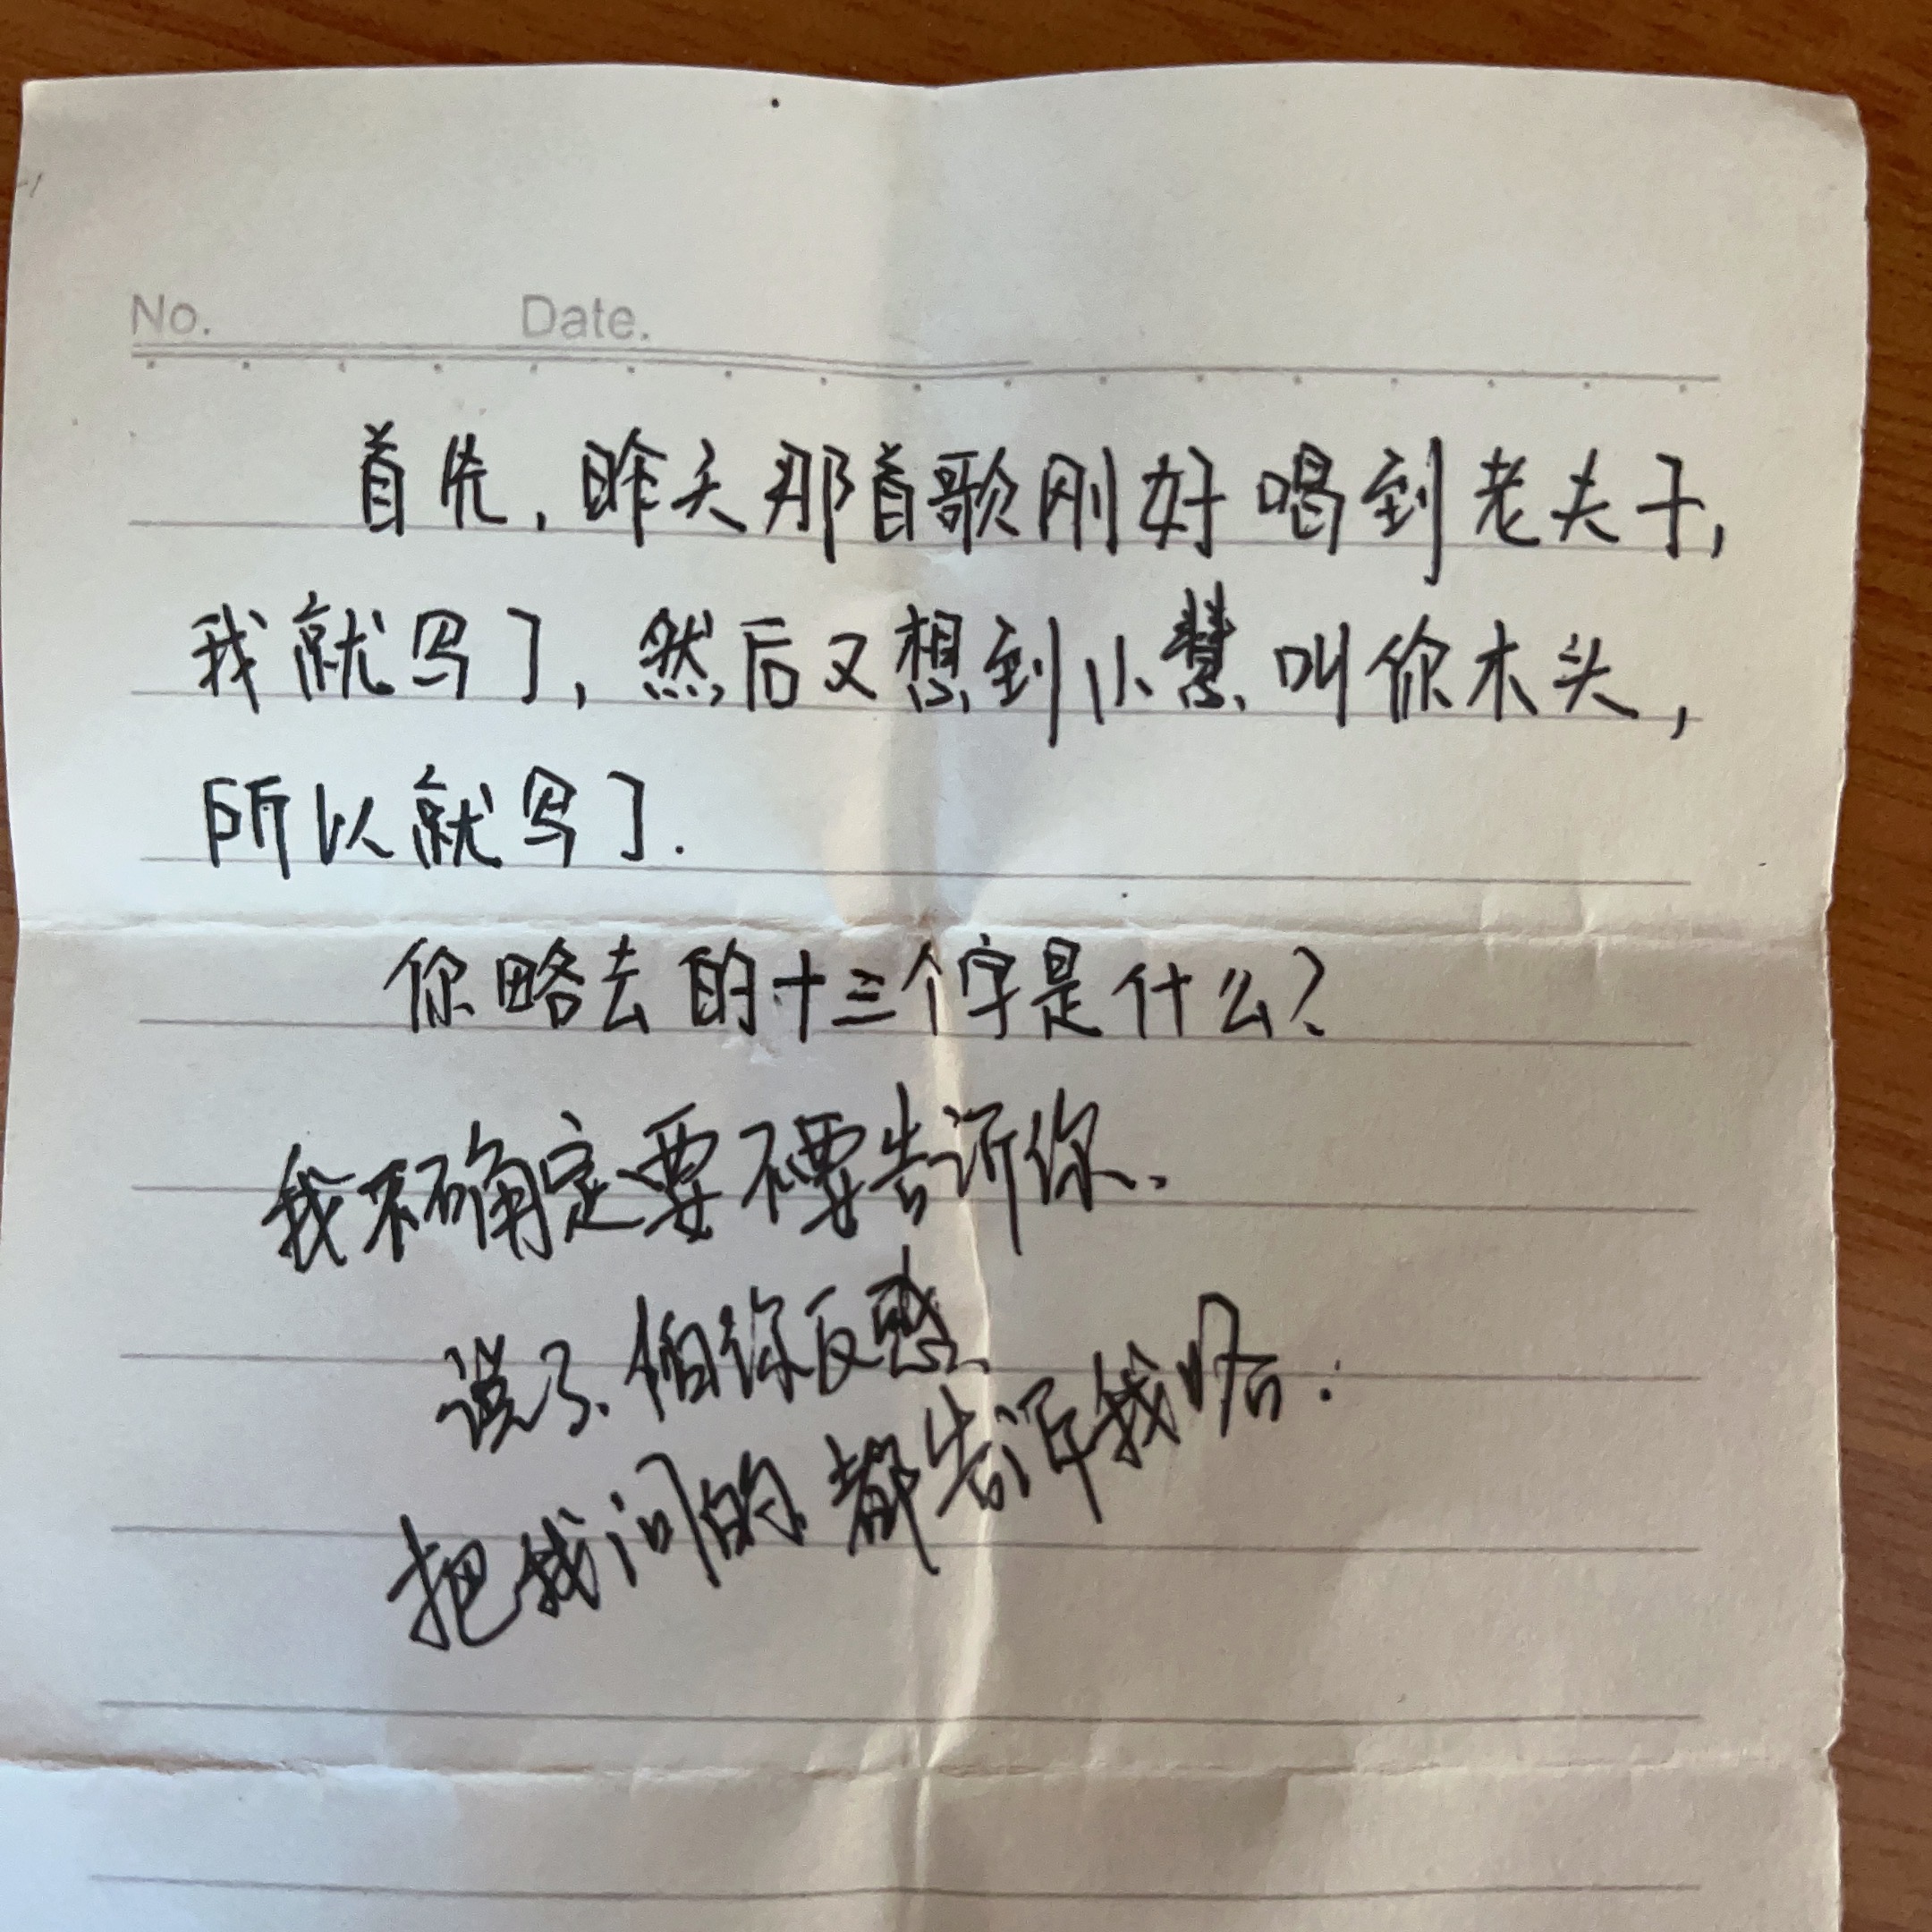 No. Date.
首先,昨天那首歌刚好喝到老夫子,
我就写了,然后又想到小慧叫你木头,
所以就写了.
你略去的十三个字是什么?
我不确定要不要告诉你、
说了、怕你反感、
把我问的都告诉我吧.